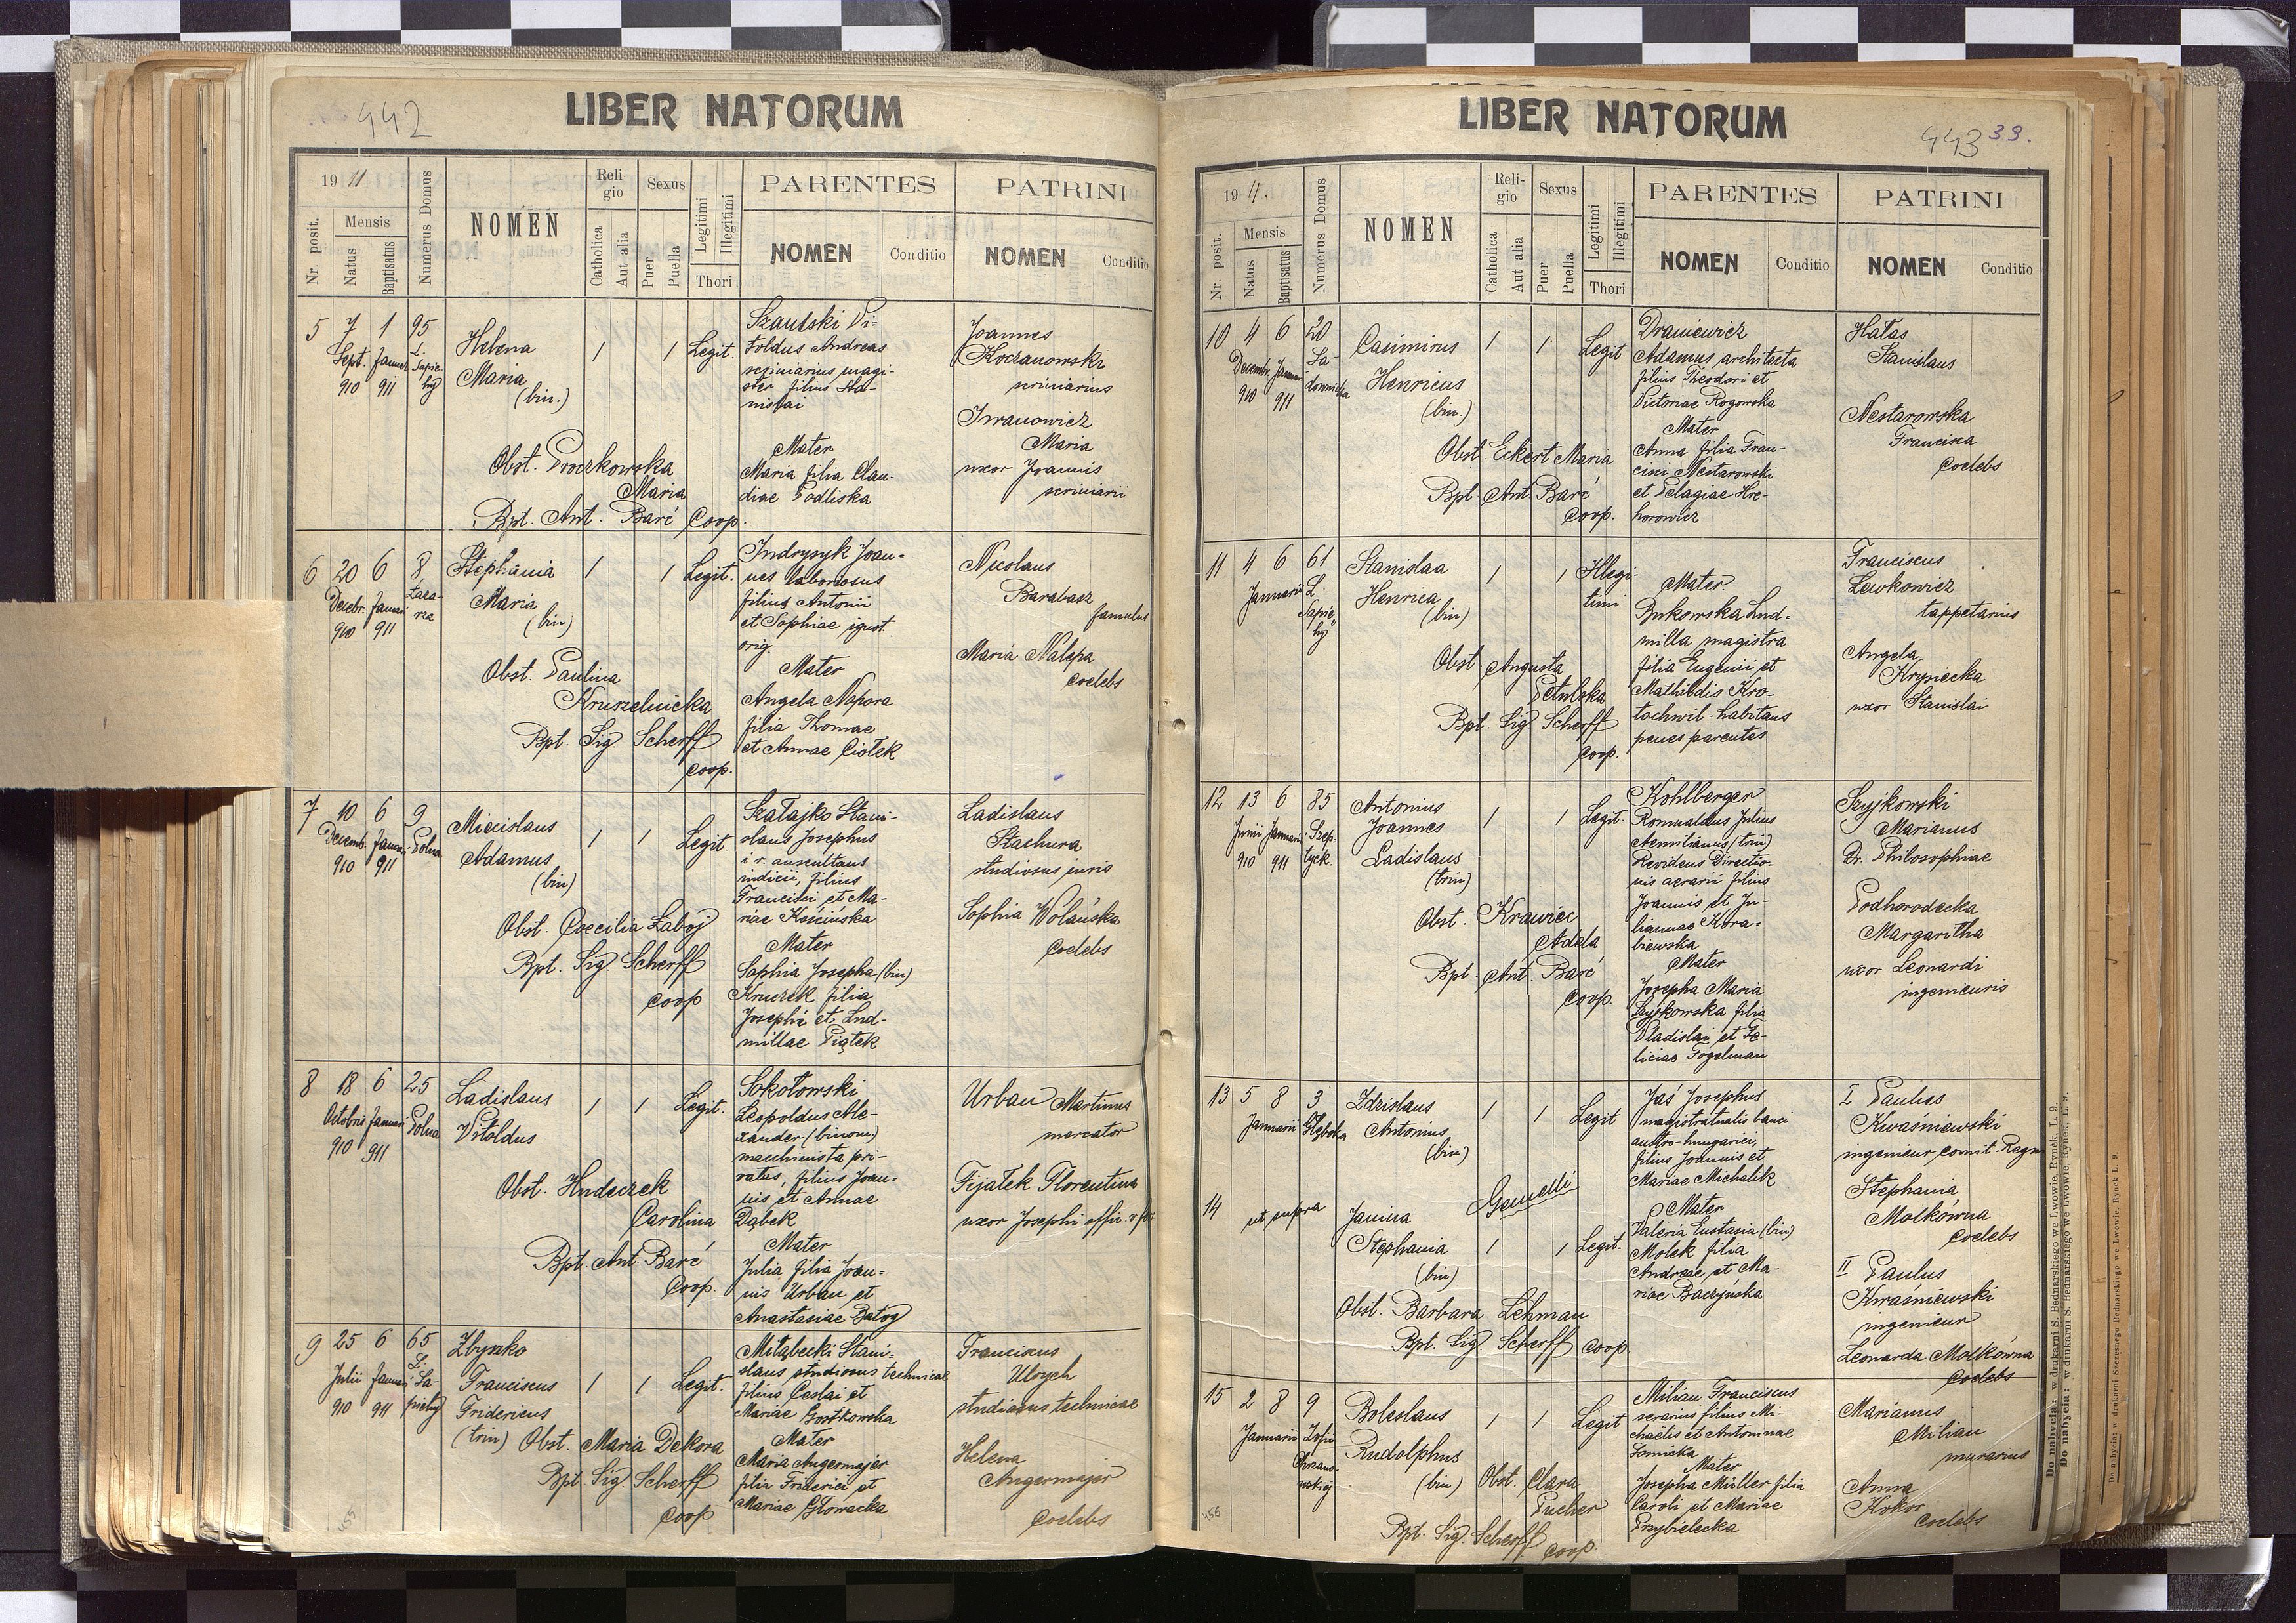 442
LIBER NATORUM
19 11
Nr. posit.
Mensis
Natus
Baptisatus
Numerus Domus
NOMEN
Reli
gio
Catholica
Aut alia
Sexus
Puer
Puella
Legitimi
Illegitimi
Thori
PARENTES
NOMEN
Conditio
PATRINI
NOMEN
Conditio
5
7
Sept.
910
1
Januar
911
95
L.
Sapie-
hy
Helena
Maria
(bin.)
1
1
Legit.
Obst. Proczkowska
Maria
Bpt. Ant. Baré Coop.
Szautski Vi-
toldus Andreas
scriniarius magi-
ster filius Sta-
nislai
Mater
Maria filia Clau-
diae Podliska
Joannes
Koczanowski
scriniarius
Iwanowicz
Maria
uxor Joannis
scriniarii
6
20
Decebr.
910
6
Januari
911
8
Łaza-
rza
Stephania
Maria
(bin)
1
1
Legit.
Obst. Paulina
Kruszelnicka
Bpt. Sig. Scherff
coop.
Indrysyk Joan-
nes laboriosus
filius Antonii
et Sophiae ignot.
orig.
Mater
Angela Napora
filia Thomae
et Annae Ciołek
Nicolaus
Barabasz
famulus
Maria Nalepa
coelebs
7
10
Decemb.
910
6
Januari
911
9
Polna
Miecislaus
Adamus
(bin)
1
1
Legit.
Obst. Caecilia Zabój
Bpt. Sig. Scherff
coop
Szałajko Stani-
slaus Josephus
i r. auscultans
iudicii, filius
Francisci et Ma-
riae Kościńska
Mater
Sophia Josepha (bin)
Kruczek filia
Josephi et Lud-
millae Piątek
Ladislaus
Stachura
studiosus iuris
Sophia Wolańska
coelebs
8
18
Octobris
910
6
Januari
911
25
Polna
Ladislaus
Vitoldus
1
1
Legit.
Obst. Hudeczek
Carolina
Bpt. Ant. Baré
Coop.
Sokołowski
Leopoldus Ale-
xander (binom)
machinista pri-
vatus, filius Joan-
nis et Annae
Dąbek
Mater
Julia filia Joan-
nis Urban et
Anastasiae Batog
Urban Martinus
mercator
Fijałek Florentina
uxor Josephi offic.
9
25
Julii
910
6
Januari
911
65
L.
Sa-
piehy
Zbyszko
Franciscus
Fridericus
(trin)
1
1
Legit.
Obst. Maria Dekora
Bpt. Sig. Scherff
coop
Miłąbecki Stani-
slaus studiosus technicae
filius Ceslai et
Mariae Gostkowska
Mater
Maria Angermajer
filia Friderici et
Mariae Głowacka
Franciscus
Ulrych
studiosus technicae
Helena
Angermajer
coelebs
455
LIBER NATORUM
443
39.
19 11.
Nr. posit.
Mensis
Natus
Baptisatus
Numerus Domus
NOMEN
Reli-
gio
Catholica
Aut alia
Sexus
Puer
Puella
Legitimi
Illegitimi
Thori
PARENTES
NOMEN
Conditio
PATRINI
NOMEN
Conditio
10
4
Decembr.
910
6
Januar
911
20
Sa-
downicka
Casimirus
Henricus
(bin.)
1
1
Legit.
Obst. Eckert Maria
Bpt Ant. Baré
coop.
Draniewicz
Adamus architecta
filius Theodori et
Victoriae Rogowska
Mater
Anna filia Fran-
cisci Nestarowski
et Pelagiae Hre-
horowicz
Hałas
Stanislaus
Nestarowska
Francisca
coelebs
11
4
Januarii
6
61
L.
Sapie-
hy
Stanislaa
Henrica
(bin)
1
1
Illegi-
timi
Obst Augusta
Petulska
Bpt. Sig. Scherff
coop.
Mater
Bukowska Lud-
milla magistra
filia Eugenii et
Mathildis Kro-
tochwil-habitans
penes parentes
Franciscus
Lewkowicz
tappetarius
Angela
Krynicka
uxor Stanislai
12
13
Junii
910
6
Januarii
911
85
Szep-
tyck.
Antonius
Joannes
Ladislaus
(trin)
1
1
Legit.
Obst. Krawiec
Adela
Bpt. Ant. Baré
coop.
Kohlberger
Romualdus Julius
Aemilianus (trin)
Revidens Directio-
nis aerarii filius
Joannis et Ju-
liannae Kora-
biewska
Mater
Josepha Maria
Szyjkowska filia
Vladislai et Fe-
liciae Fogelman
Szyjkowski
Marianus
Dr. Philosophiae
Podhorodecka
Margaritha
uxor Leonardi
ingenieuris
13
5
Januarii
8
3
Głęboka
Zdzislaus
Antonius
(bin)
1
1
Legit
Gemelli
Jaś Josephus
magistratualis banci
austro-hungarici,
filius Joannis et
Mariae Michalik
Mater
Valeria Eustasia (bin)
Molek filia
Andreae et Ma-
riae Baczyńska
I Paulus
Kwaśniewski
ingenieur comit. Regn
Stephania
Molkówna
coelebs
14
ut supra
Janina
Stephania
(bin)
1
1
Legit.
Obst. Barbara Lehman
Bpt. Sig. Scherff coop.
II Paulus
Kwaśniewski
ingenieur
Leonarda Molkówna
coelebs
15
2
Januarii
8
9
Zofii
Chrzano-
wskiej
Boleslaus
Rudolphus
(bin)
1
1
Legit
Obst. Clara
Pucher
Bpt. Sig. Scherff coop.
Milian Franciscus
serarius filius Mi-
chaëlis et Antoninae
Sornicka
Mater
Josepha Müller filia
Caroli et Mariae
Przybielecka
Marianus
Milian
murarius
Anna
Kokor
coelebs
456
Do nabycia: w drukarni S. Bednarskiego we Lwowie, Rynek, L. 9.
Do nabycia: w drukarni S. Bednarskiego we Lwowie, Rynek, L. 9.
Do nabycia: w drukarni Szczęsnego Bednarskiego we Lwowie, Rynek L. 9.